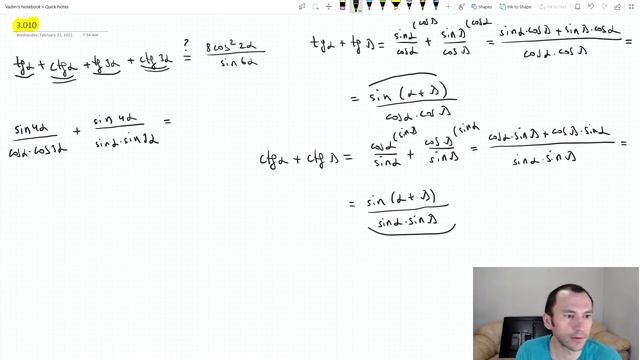 Vadim's Notebook » Quick Notes
Shapes
Ink to Shape
Ink to Math
3.010
Wednesday, February 23, 2022 7:54 AM
tgα + ctgα + tg3α + ctg3α =? 8cos²2α / sin6α
sin4α / cosα·cos3α + sin4α / sinα·sin3α =
tgα + tgβ = sinα/cosα (cosβ + sinβ/cosβ (cosα = sinα·cosβ + sinβ·cosα / cosα·cosβ =
= sin(α+β) / cosα·cosβ
ctgα + ctgβ = cosα/sinα (sinβ + cosβ/sinβ (sinα = cosα·sinβ + cosβ·sinα / sinα·sinβ =
= sin(α+β) / sinα·sinβ